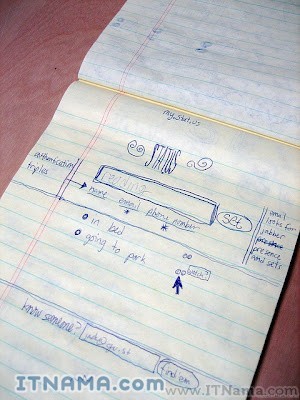 my.stat.us
STATUS
reading
set
name email phone number
authentication
triples
in bed
going to park
watch?
email
looks for
jabber
presence
and sets
know someone?
find em
ITNAMA.com
www.ITNama.com